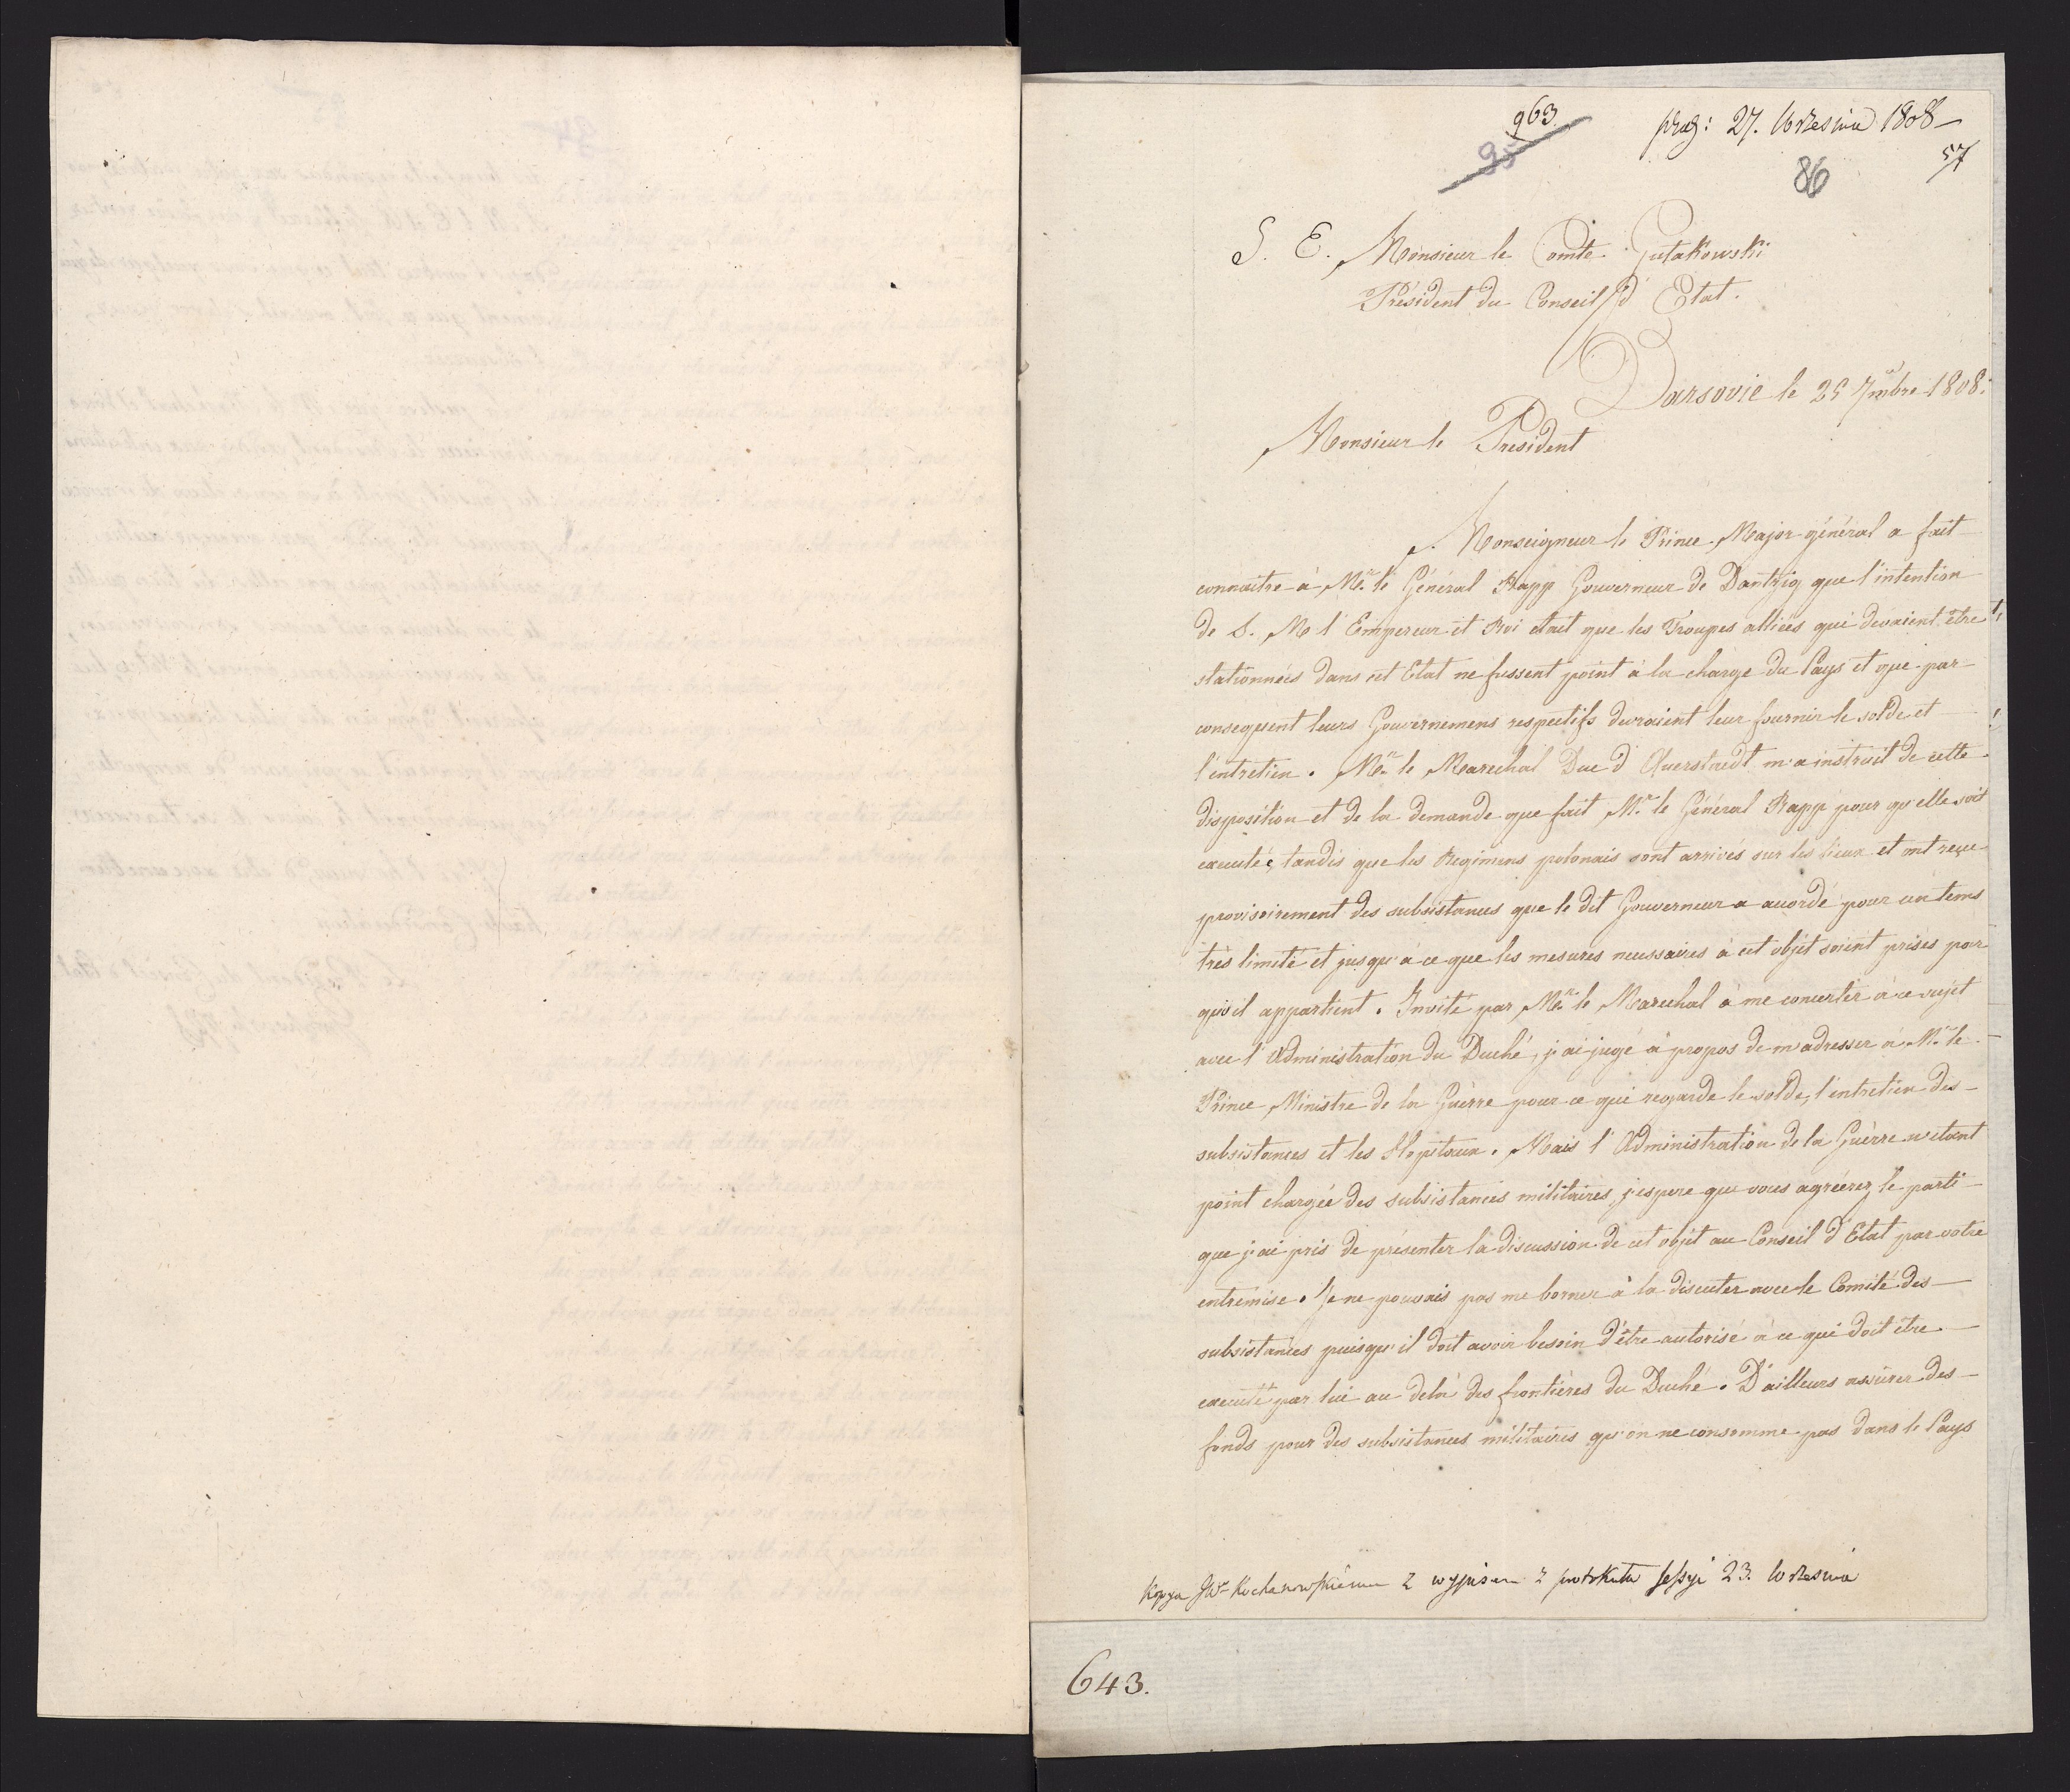 963
95
prag: 27. Września 1808
57
86
S. E. Monsieur le Comte Gutakowski
Président du Conseil d'Etat.
Varsovie le 25 7mbre 1808.
Monsieur le President
Monseigneur le Prince Major général a fait
connaitre à Mr. le Général Rapp Gouverneur de Dantzig que l'intention
de S. M l'Empereur et Roi etait que les Troupes alliées qui devaient être
stationnées dans cet Etat ne fussent point à la charge du Pays et que par
consequent leurs Gouvernemens respectifs devraient leur fournir le solde et
l'entretien. Mr. le Marechal Duc d'Auerstaedt m'a instruit de cette
disposition et de la demande que fait Mr. le Général Rapp pour qu'elle soit
executée, tandis que les Regimens polonais sont arrivés sur les lieux et ont reçue
provisoirement des subsistances que le dit Gouverneur a accordé pour un tems
très limité et jusqu'à ce que les mesures necessaires à cet objet soient prises par
qui il appartient. Invité par Mr. le Marechal à me concerter à ce sujet
avec l'Administration du Duché, j'ai jugé à propos de m'adresser à Mr. le
Prince Ministre de la Guèrre pour ce qui regarde le solde, l'entretien des
subsistances et les Hopitaux. Mais l'Administration de la Guèrre n'etant
point chargée des subsistances militaires, j'espere que vous agréerez le parti
que j'ai pris de présenter la discussion de cet objet au Conseil d'Etat par votre
entremise. Je ne pouvais pas me borner à la discuter avec le Comité des
subsistances puisqu'il doit avoir besoin d'être autorisé à ce qui doit être
executé par lui au delà des frontières du Duché. D'ailleurs assurer des
fonds pour des subsistances militaires qu'on ne consomme pas dans le Pays
Kopya JWr Kochanowskiemu z wypisem z protokułu sessyi 23. Września
643.